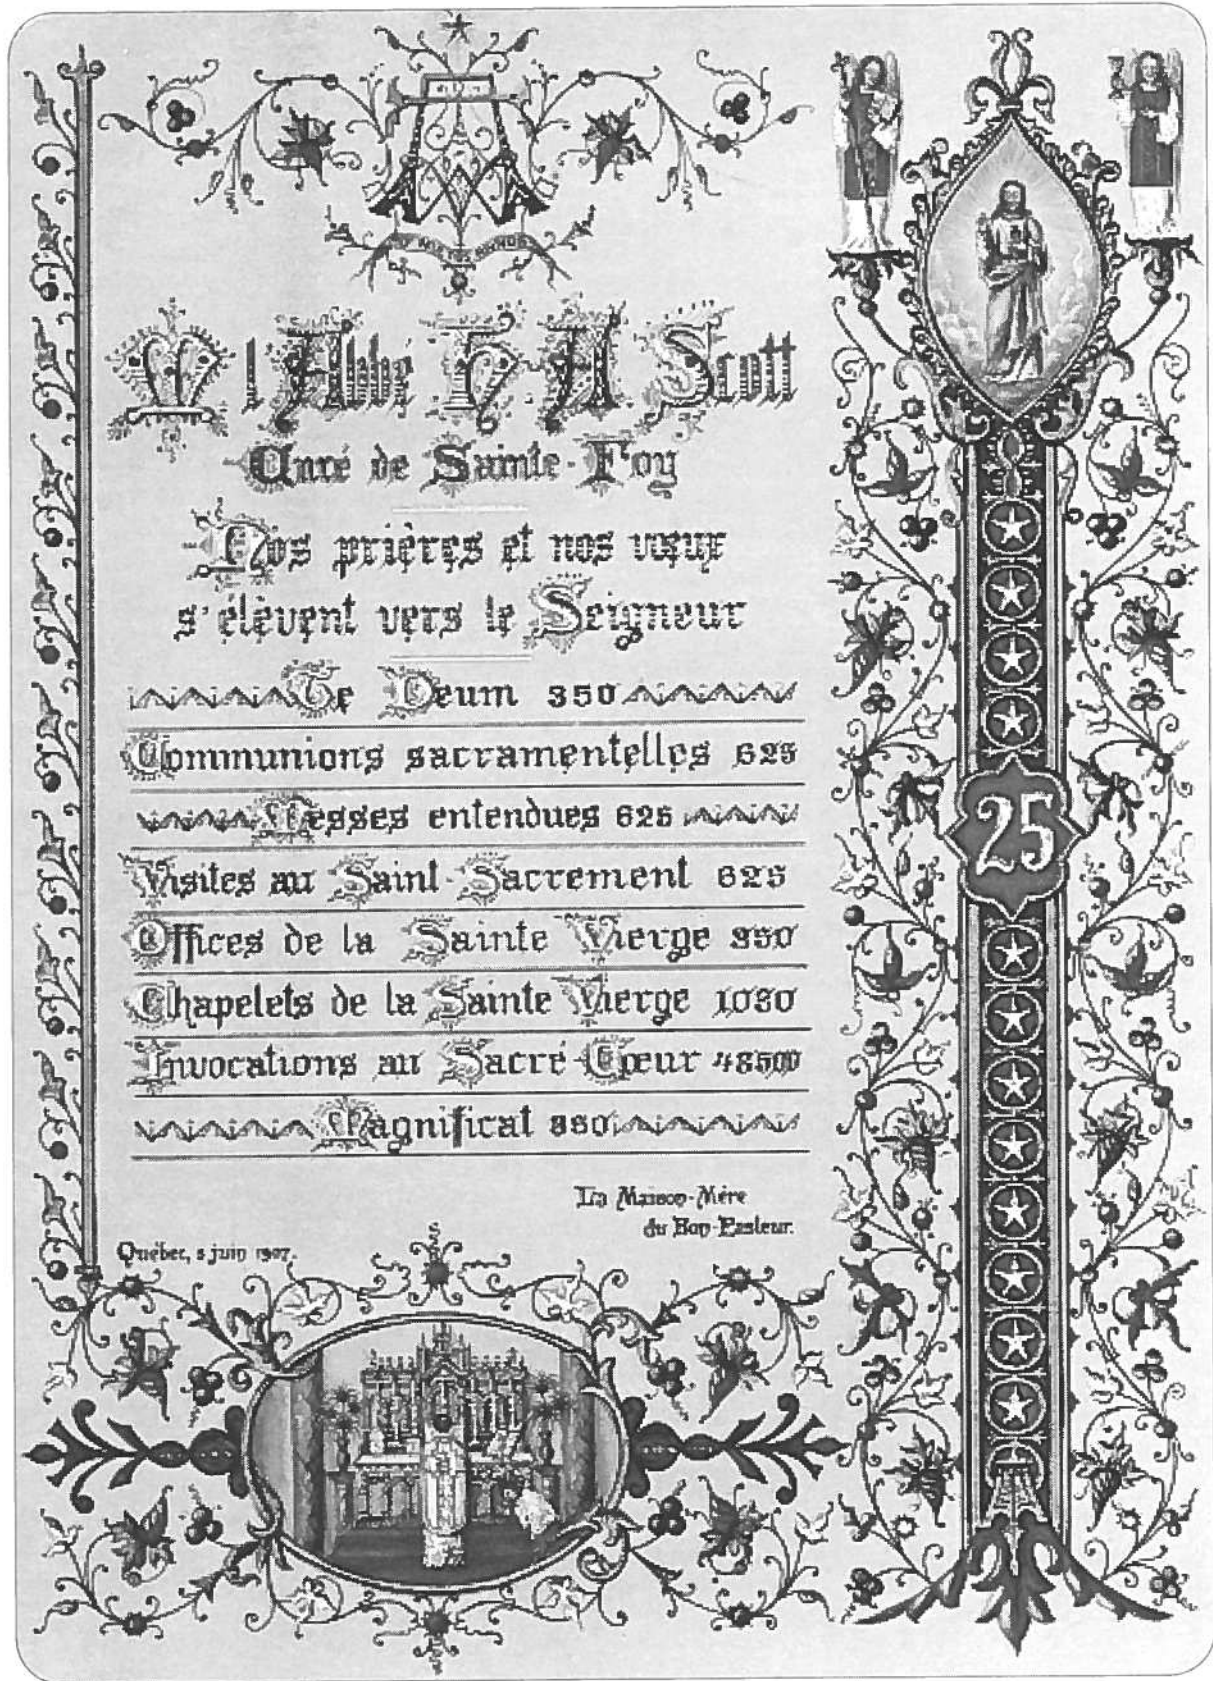 M l'Abbé H A Scott
Curé de Sainte-Foy
Nos prières et nos vœux
s'élèvent vers le Seigneur
Te Deum 350
Communions sacramentelles 625
Messes entendues 625
Visites au Saint-Sacrement 625
Offices de la Sainte Vierge 350
Chapelets de la Sainte Vierge 1030
Invocations au Sacré-Cœur 48500
Magnificat 350
La Maison-Mère
du Bon-Pasteur.
Québec, 5 juin 1907.
25